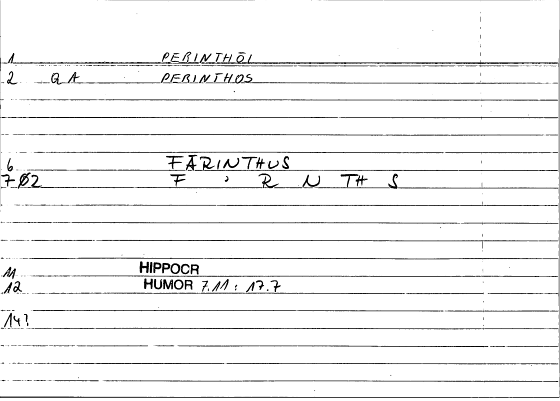 1 PERINTHŌI
2 QA PERINTHOS
6 FĀRINTHUS
7 Ø2 F ' R N TH S
11 HIPPOCR
12 HUMOR 7.11 : 17.7
14?